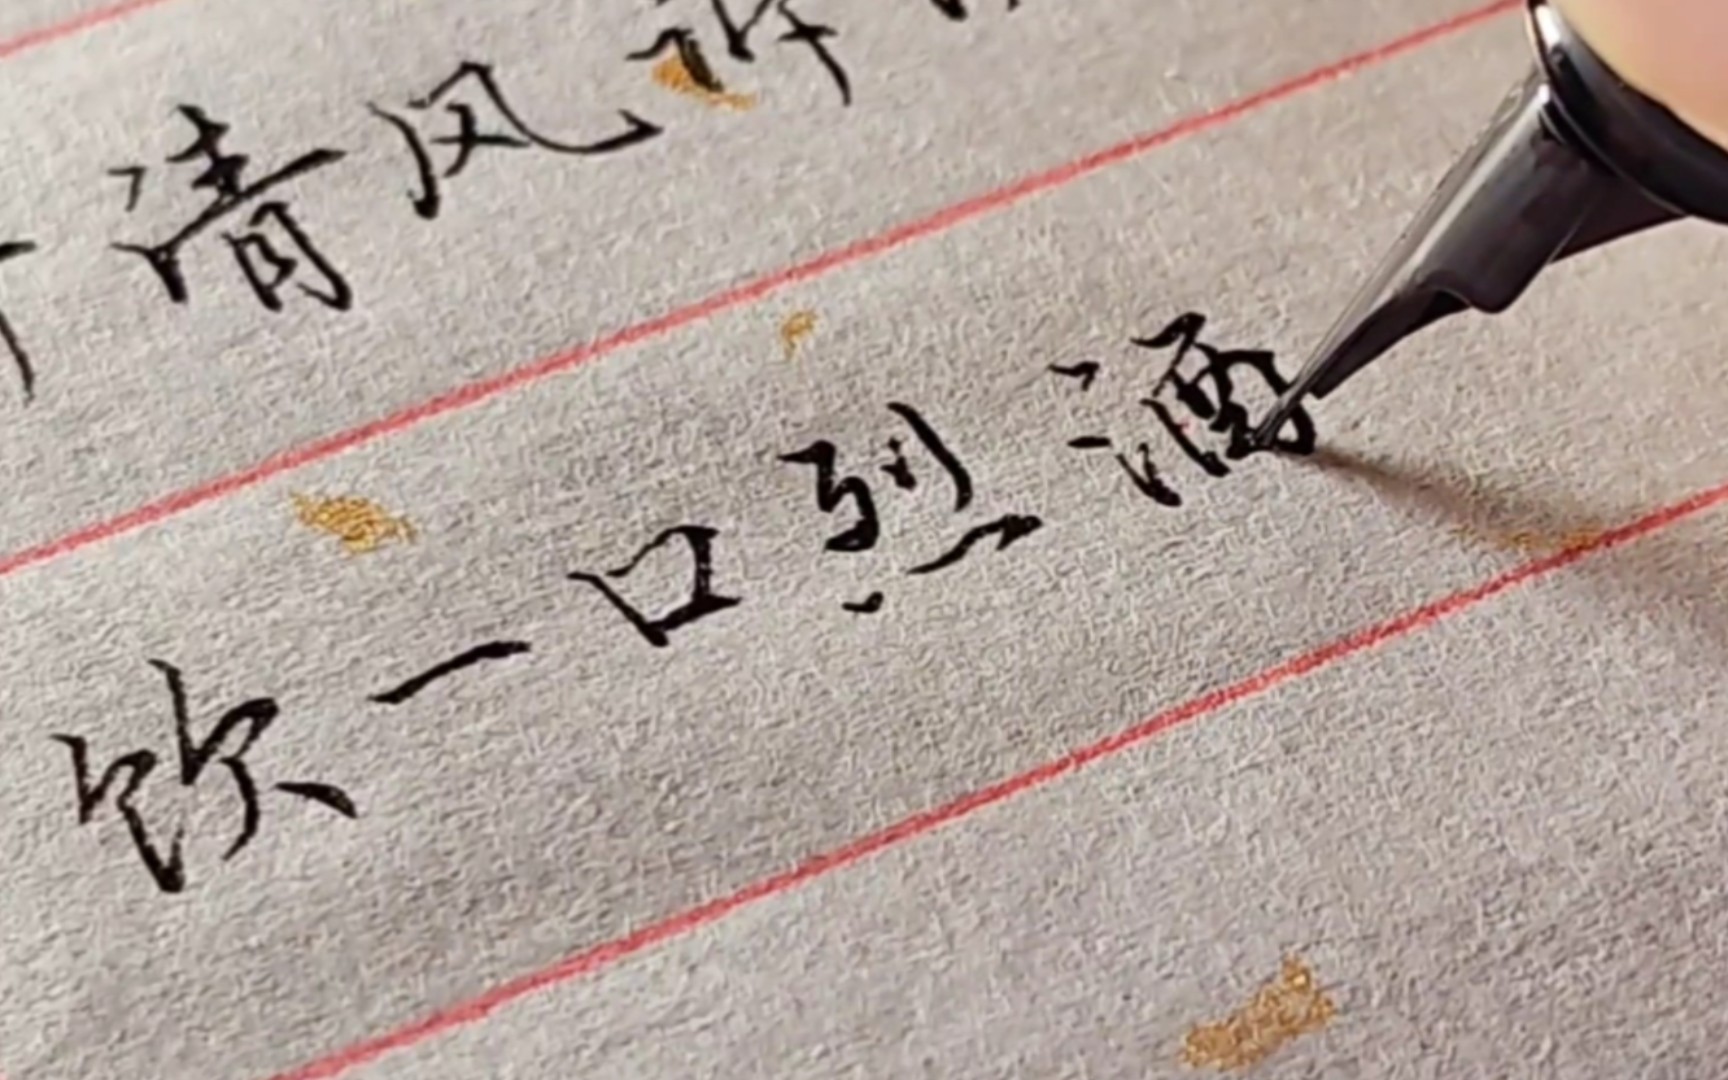 清风
饮一口烈酒